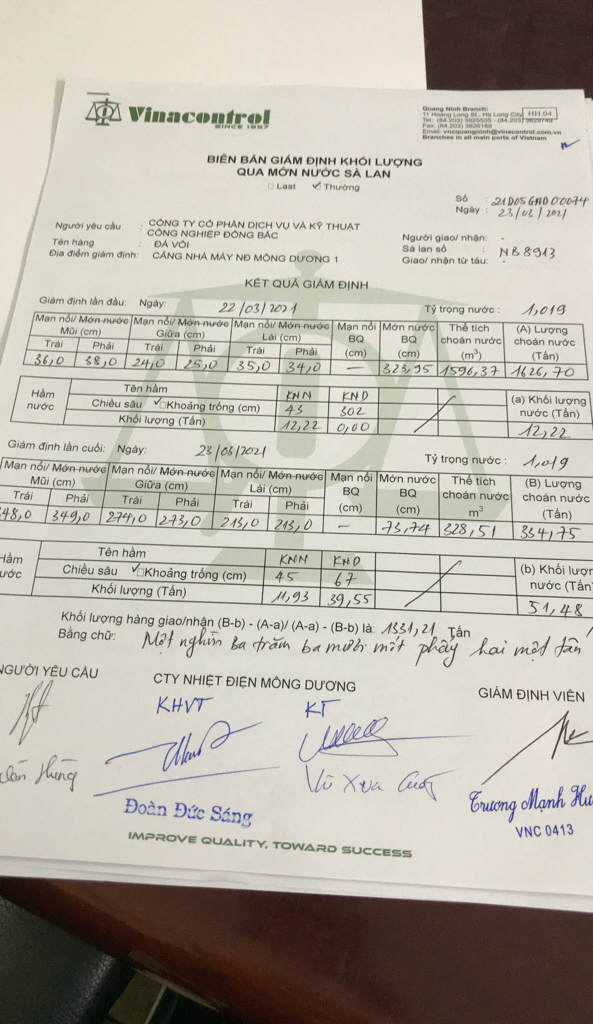 Vinacontrol
SINCE 1957
Quang Ninh Branch:
11 Hoang Long St., Ha Long City
HH.04
Tel: (84.203) 3825535 - (84.203) 3829749
Fax: (84.203) 3826169
Email: vncquangninh@vinacontrol.com.vn
Branches in all main ports of Vietnam
BIÊN BẢN GIÁM ĐỊNH KHỐI LƯỢNG
QUA MỚN NƯỚC SÀ LAN
Last ✓ Thường
Số : 21D05GHD00074
Ngày : 23/03/2021
Người yêu cầu : CÔNG TY CỔ PHẦN DỊCH VỤ VÀ KỸ THUẬT
CÔNG NGHIỆP ĐÔNG BẮC
Người giao/ nhận: -
Tên hàng : ĐÁ VÔI
Sà lan số : NB8913
Địa điểm giám định: CẢNG NHÀ MÁY NĐ MÔNG DƯƠNG 1
Giao/ nhận từ tàu: -
KẾT QUẢ GIÁM ĐỊNH
Giám định lần đầu: Ngày: 22/03/2021 Tỷ trọng nước : 1,019
Mạn nổi/ Mớn nước Mũi (cm) Mạn nổi/ Mớn nước Giữa (cm) Mạn nổi/ Mớn nước Lái (cm) Mạn nổi BQ (cm) Mớn nước BQ (cm) Thể tích choán nước (m³) (A) Lượng choán nước (Tấn)
Trái Phải Trái Phải Trái Phải
36,0 38,0 24,0 25,0 35,0 34,0 — 323,95 1596,37 1626,70
Hầm nước
Tên hầm KNN KND
Chiều sâu ✓ Khoảng trống (cm) 43 302
(a) Khối lượng nước (Tấn)
Khối lượng (Tấn) 12,22 0,00 12,22
Giám định lần cuối: Ngày: 23/03/2021 Tỷ trọng nước : 1,019
Mạn nổi/ Mớn nước Mũi (cm) Mạn nổi/ Mớn nước Giữa (cm) Mạn nổi/ Mớn nước Lái (cm) Mạn nổi BQ (cm) Mớn nước BQ (cm) Thể tích choán nước m³ (B) Lượng choán nước (Tấn)
Trái Phải Trái Phải Trái Phải
348,0 349,0 274,0 273,0 213,0 213,0 — 73,74 328,51 334,75
Hầm nước
Tên hầm KNN KND
Chiều sâu ✓ Khoảng trống (cm) 45 67
(b) Khối lượng nước (Tấn
Khối lượng (Tấn) 11,93 39,55 51,48
Khối lượng hàng giao/nhận (B-b) - (A-a)/ (A-a) - (B-b) là: 1331,21 Tấn
Bằng chữ: Một nghìn ba trăm ba mươi mốt phẩy hai một tấn
NGƯỜI YÊU CẦU
CTY NHIỆT ĐIỆN MÔNG DƯƠNG
GIÁM ĐỊNH VIÊN
KHVT KT
Hùng
Đoàn Đức Sáng
Vũ
Trương Mạnh
VNC 0413
IMPROVE QUALITY, TOWARD SUCCESS